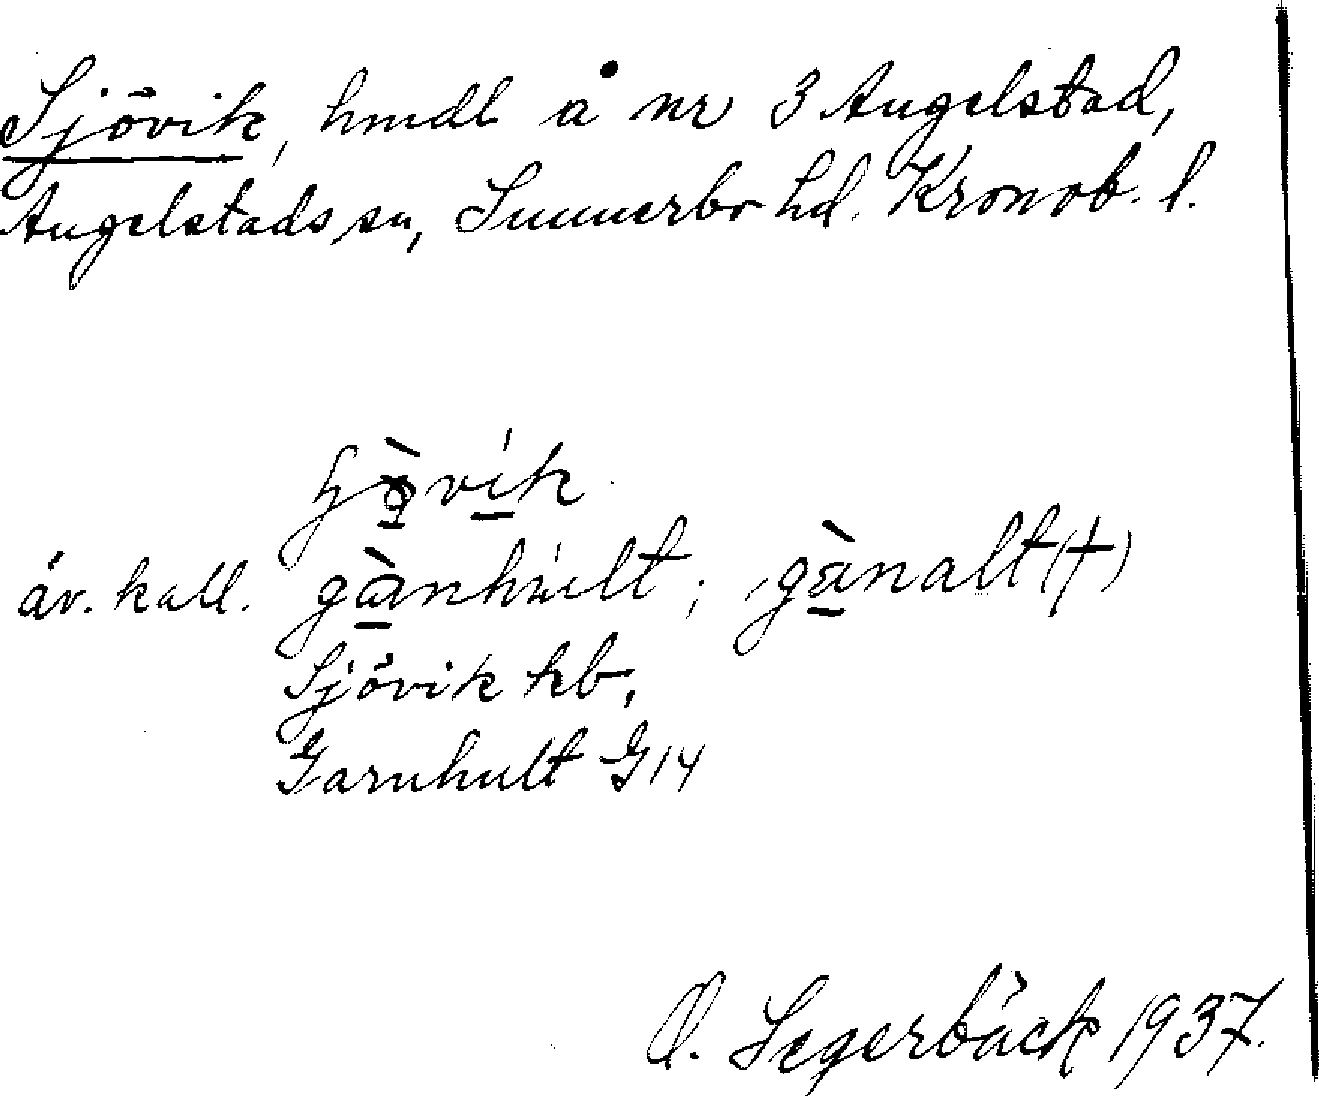 Sjövik, hmdl å nr 3 Angelstad,
Angelstads sn, Sunnerbo hd. Kronob. l.
äv. kall. gànhult; gànalt (†)
Sjövik kb,
Garnhult G14
O. Segerbäck 1937.